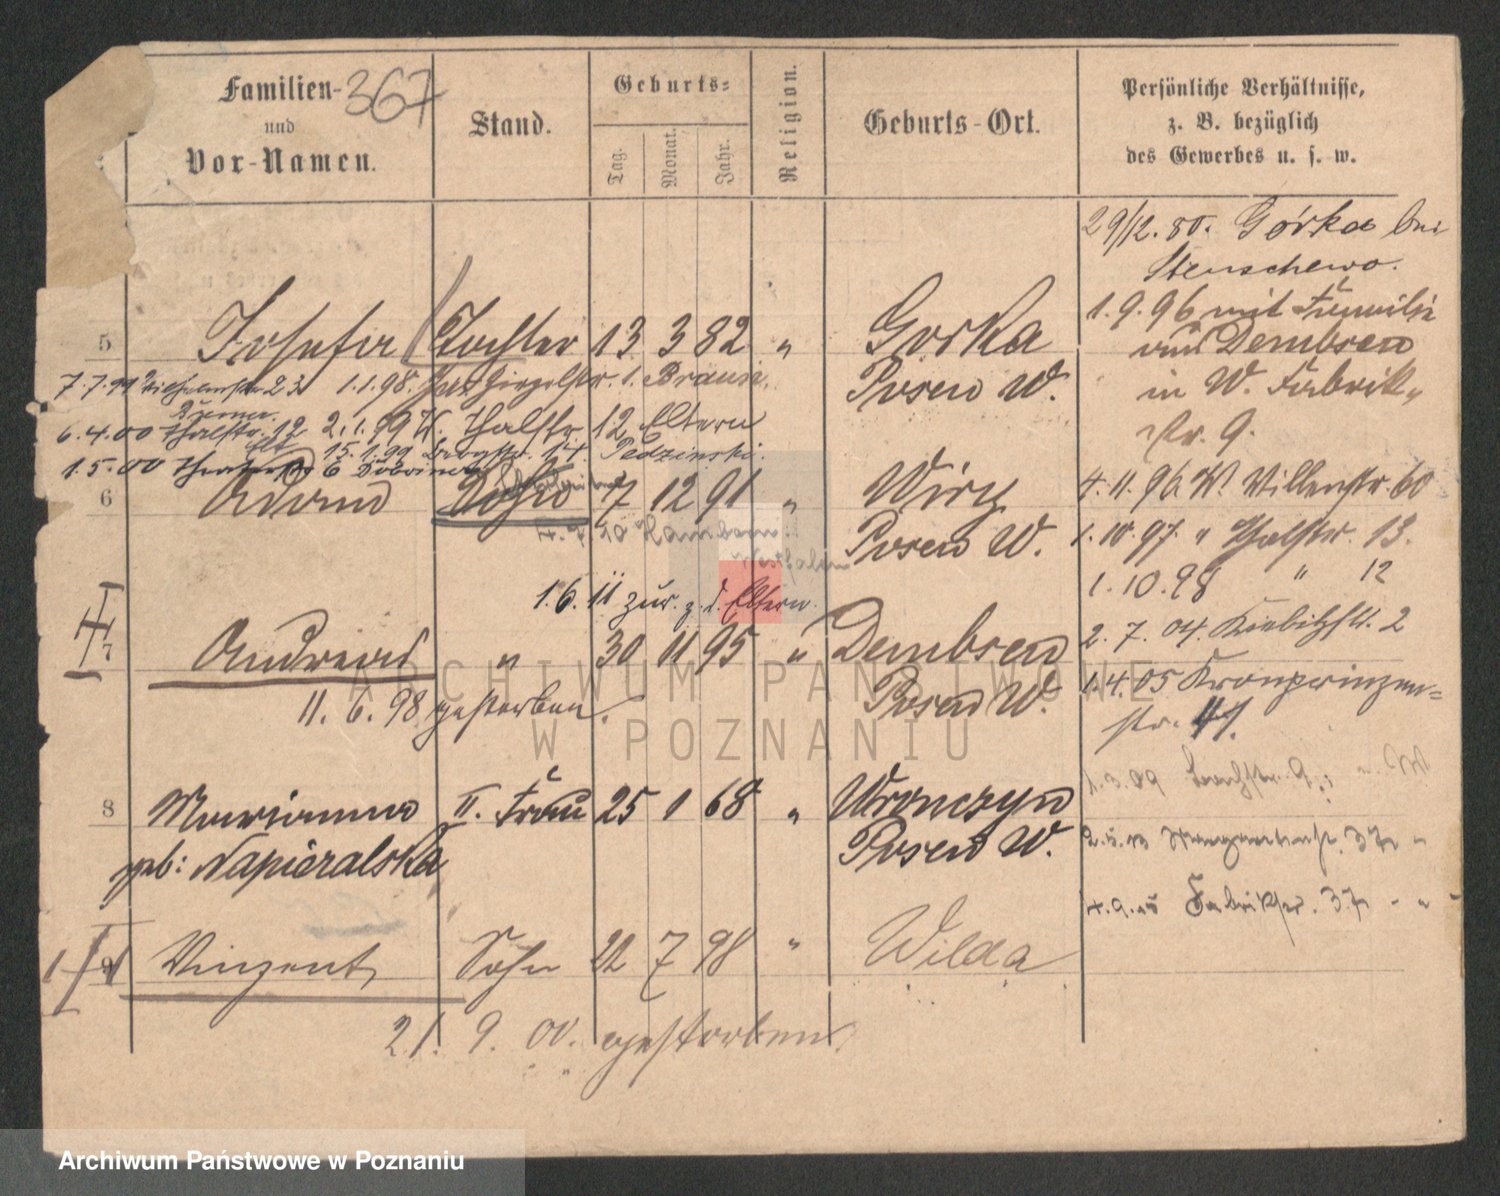 Familien- 367
und
Vor-Namen.
Stand.
Geburts=
Tag.
Monat.
Jahr.
Religion.
Geburts-Ort.
Persönliche Verhältnisse,
z. B. bezüglich
des Gewerbes u. s. w.
29/12. 80. Górka bei
Stenschewo.
5 Josefa Tochter 13 3 82 " Gorka
Posen W.
1.9.96 mit Familie
aus Dembsen
in W. Fabrik-
str. 9.
7.7.99 23 1.1.98. 1. Braun.
6.4.00 Thalstr. 12 2.1.99 W. Thalstr. 12 Eltern
15.1.99 14 Pedzinski.
1.5.00 6
6 Adam Sohn 17 12 91 " Wiry
Posen W.
4.11.96 W. Villenstr. 60
1.10.97. " Thalstr. 13.
1.10.98 " 12
1.6.11 zur. z. d. Eltern.
7 Andreas " 30 11 95 " Dembsen
Posen W.
11. 6. 98 gestorben.
2. 7. 04. 2
1.4.05 Kronprinzen=
str.
1.3.09
8 Marianna II. Frau 25 1 68 " Wronczyn
geb: Napieralska Posen W.
37 "
Fabrikstr. 37 - " -
9 Vinzent Sohn 22 7 98 " Wilda
21. 9. 00. gestorben.
ARCHIWUM PAŃSTWOWE
W POZNANIU
Archiwum Państwowe w Poznaniu